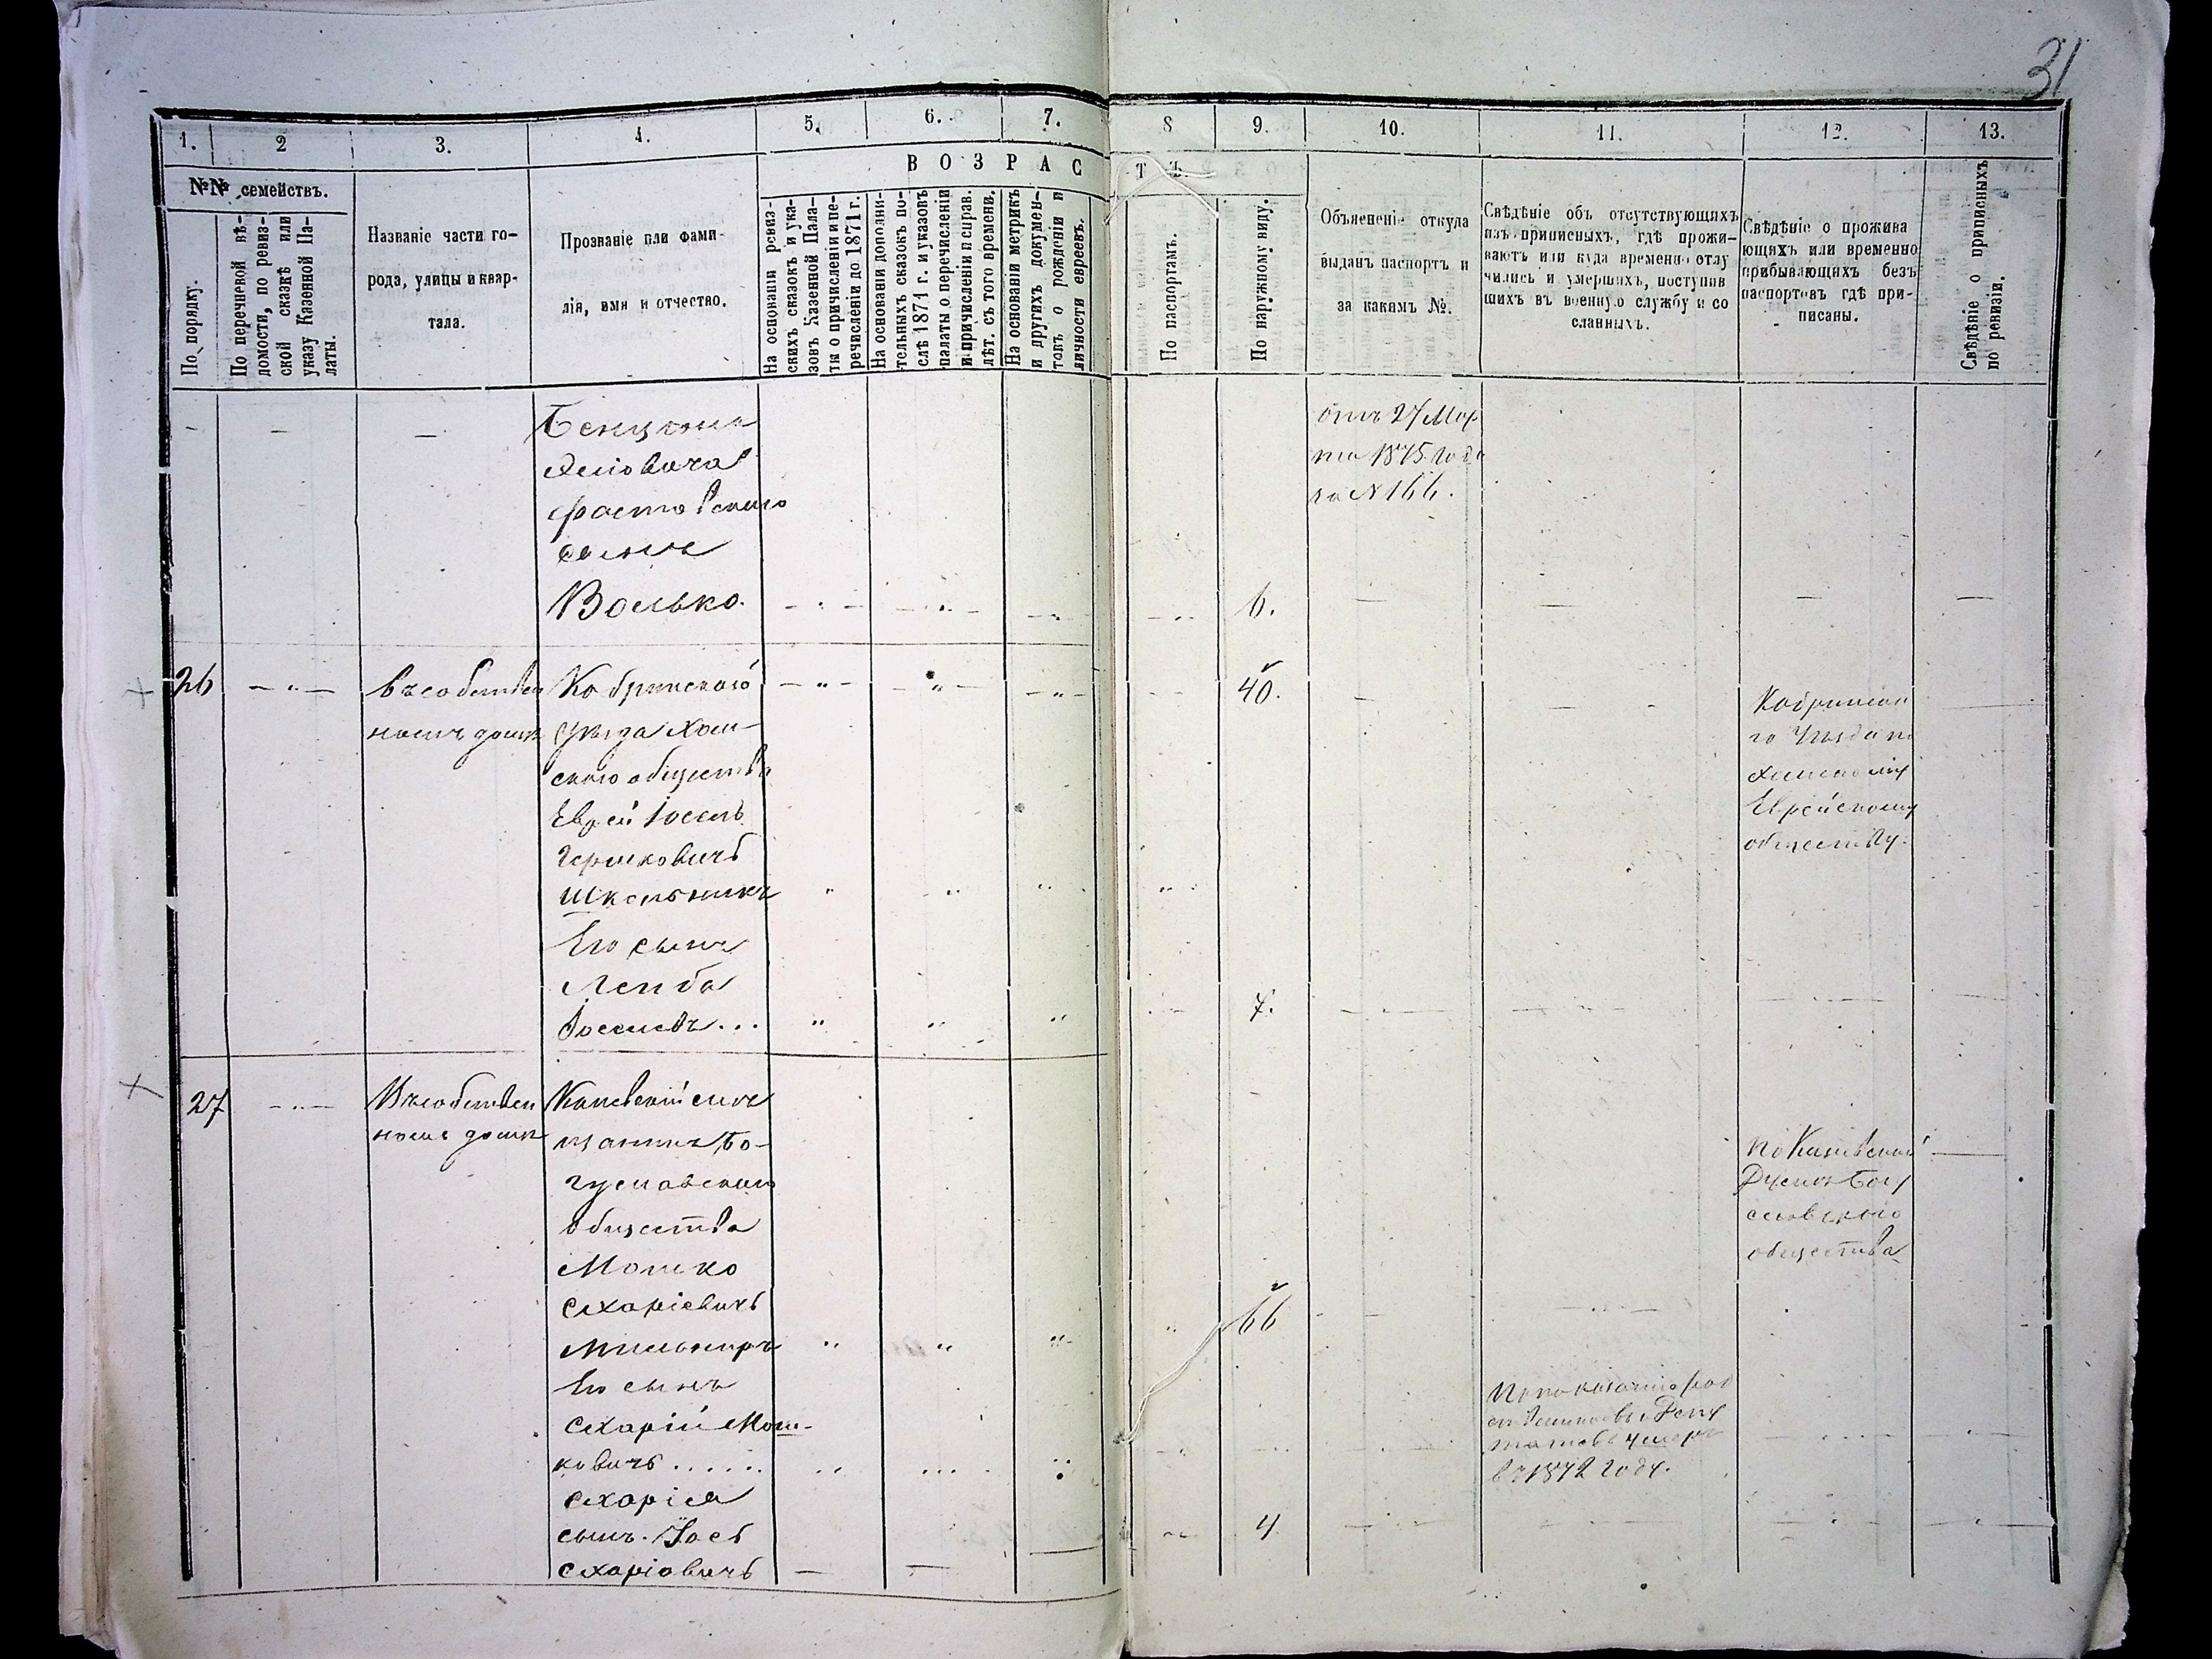 31
1. 2 3. 4. 5. 6. 7. 8 9. 10. 11. 12. 13.
№№ семействъ.
В О З Р А С Т Ъ.
По порядку.
По перечневой вѣ-
домости, по ревиз-
ской сказкѣ или
указу Казенной Па-
латы.
Названіе части го-
рода, улицы и квар-
тала.
Прозваніе или фами-
лія, имя и отчество.
На основаніи ревиз-
скихъ сказокъ и ука-
зовъ Казенной Пала-
ты о причисленіи и пе-
речисленіи до 1871 г.
На основаніи дополни-
тельныхъ сказокъ по-
слѣ 1871 г. и указовъ
палаты о перечисленіи
и причисленіи и справ.
лѣт. съ того времени.
На основаніи метрикъ
и другихъ докумен-
товъ о рожденіи и
личности евреевъ.
По паспортамъ.
По наружному виду.
Объясненіе откуда
выданъ паспортъ и
за какимъ №.
Свѣдѣніе объ отсутствующихъ
изъ приписныхъ, гдѣ прожи-
ваютъ или куда временно отлу
чились и умершихъ, поступив
шихъ въ военную службу и со
сланныхъ.
Свѣдѣніе о прожива
ющихъ или временно
прибывающихъ безъ
паспортовъ гдѣ при-
писаны.
Свѣдѣніе о приписныхъ
по ревизіи.
Бенціона
фастовскаго
сынъ
Волько. 6.
отъ 27 Мар
та 1875 года
за № 166.
26 въ собствен
номъ домѣ
Кобринскаго
уѣзда Хом-
скаго общества
Еврей Іосель
Гершковичъ
Школьникъ
40.
Кобринска
го Уѣзда по
Хомскому
Еврейскому
обществу.
Его сынъ
Лейба
Іоселевъ... 7.
27 Въ собствен
номъ домѣ
Каневскій мѣ
щанинъ, Бо-
гуславскаго
общества
Мошко
Схаріевичъ
Мильнеръ
66
по Каневской
Думѣ Богу
славскаго
общества
Его сынъ
Схарій Мош-
ковичъ.....
По показанію род
ственниковъ и Депу
татовъ умеръ
въ 1872 году.
Схарія
сынъ. Іось
Схаріовичъ
4